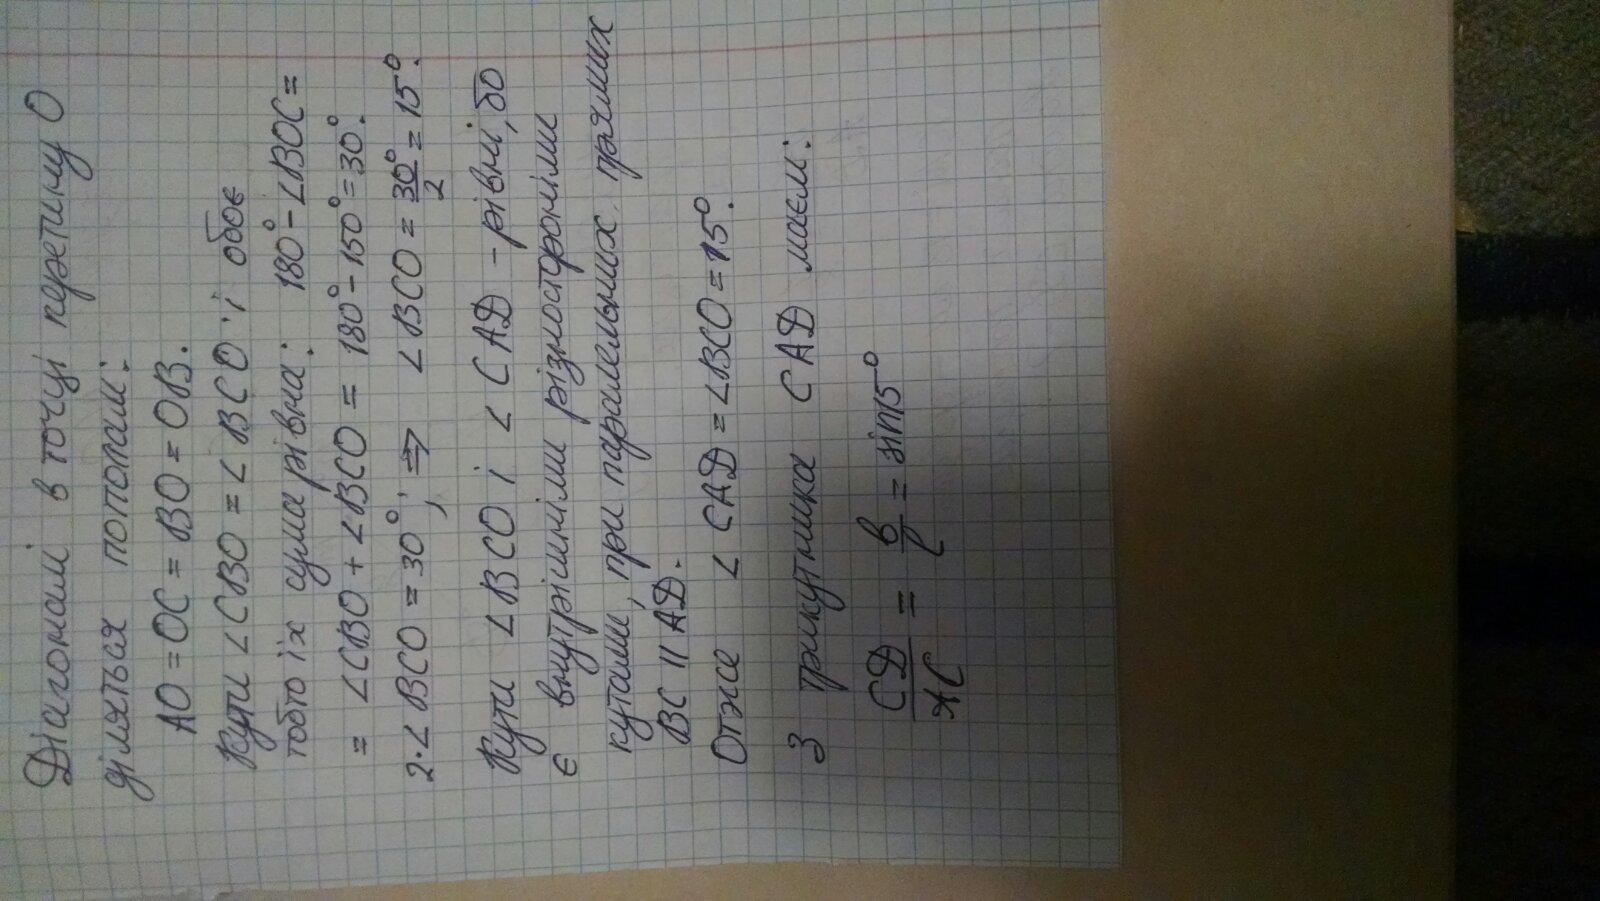 Діагоналі в точці перетину О
діляться пополам:
AO = OC = BO = OB.
Кути ∠CBO = ∠BCO і обоє
тобто їх сума рівна: 180° - ∠BOC =
= ∠CBO + ∠BCO = 180° - 150° = 30°.
2·∠BCO = 30°; ⇒ ∠BCO = 30°/2 = 15°.
Кути ∠BCO і ∠CAD - рівні, бо
є внутрішніми різносторонніми
кутами, при паралельних прямих
BC || AD.
Отже ∠CAD = ∠BCO = 15°.
З трикутника CAD маєм:
CD/AC = b/l = sin15°